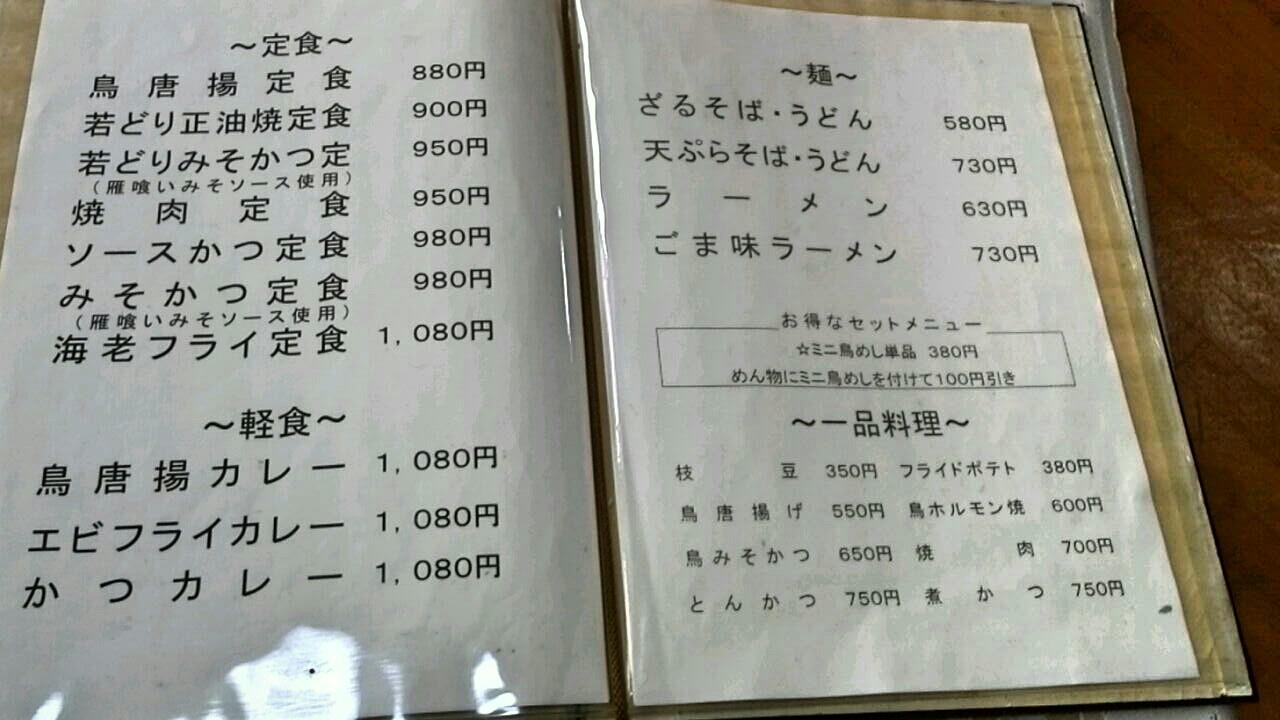 ～定食～
鳥唐揚定食 880円
若どり正油焼定食 900円
若どりみそかつ定 950円
(雁喰いみそソース使用)
焼肉定食 950円
ソースかつ定食 980円
みそかつ定食 980円
(雁喰いみそソース使用)
海老フライ定食 1,080円
～軽食～
鳥唐揚カレー 1,080円
エビフライカレー 1,080円
かつカレー 1,080円
～麺～
ざるそば・うどん 580円
天ぷらそば・うどん 730円
ラーメン 630円
ごま味ラーメン 730円
お得なセットメニュー
☆ミニ鳥めし単品 380円
めん物にミニ鳥めしを付けて100円引き
～一品料理～
枝豆 350円 フライドポテト 380円
鳥唐揚げ 550円 鳥ホルモン焼 600円
鳥みそかつ 650円 焼肉 700円
とんかつ 750円 煮かつ 750円